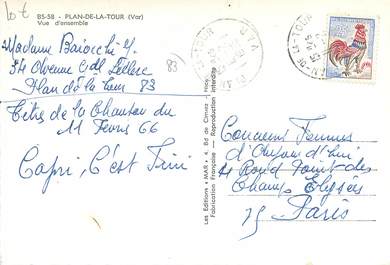 lot
85-58 - PLAN-DE-LA-TOUR (Var)
Vue d'ensemble
Madame Baiocchi
34 Avenue Gal Leclerc
Plan de la Tour 83
83
Titre de la Chanson du
11 Fevrier 66
Capri, C'est Fini
Les Editions "MAR" 4, Bd de Cimiez - Nice
Fabrication Française - Reproduction interdite
Concours Femmes
d'Aujourd'hui
4 Rond Point des
Champs Elysées
75 Paris